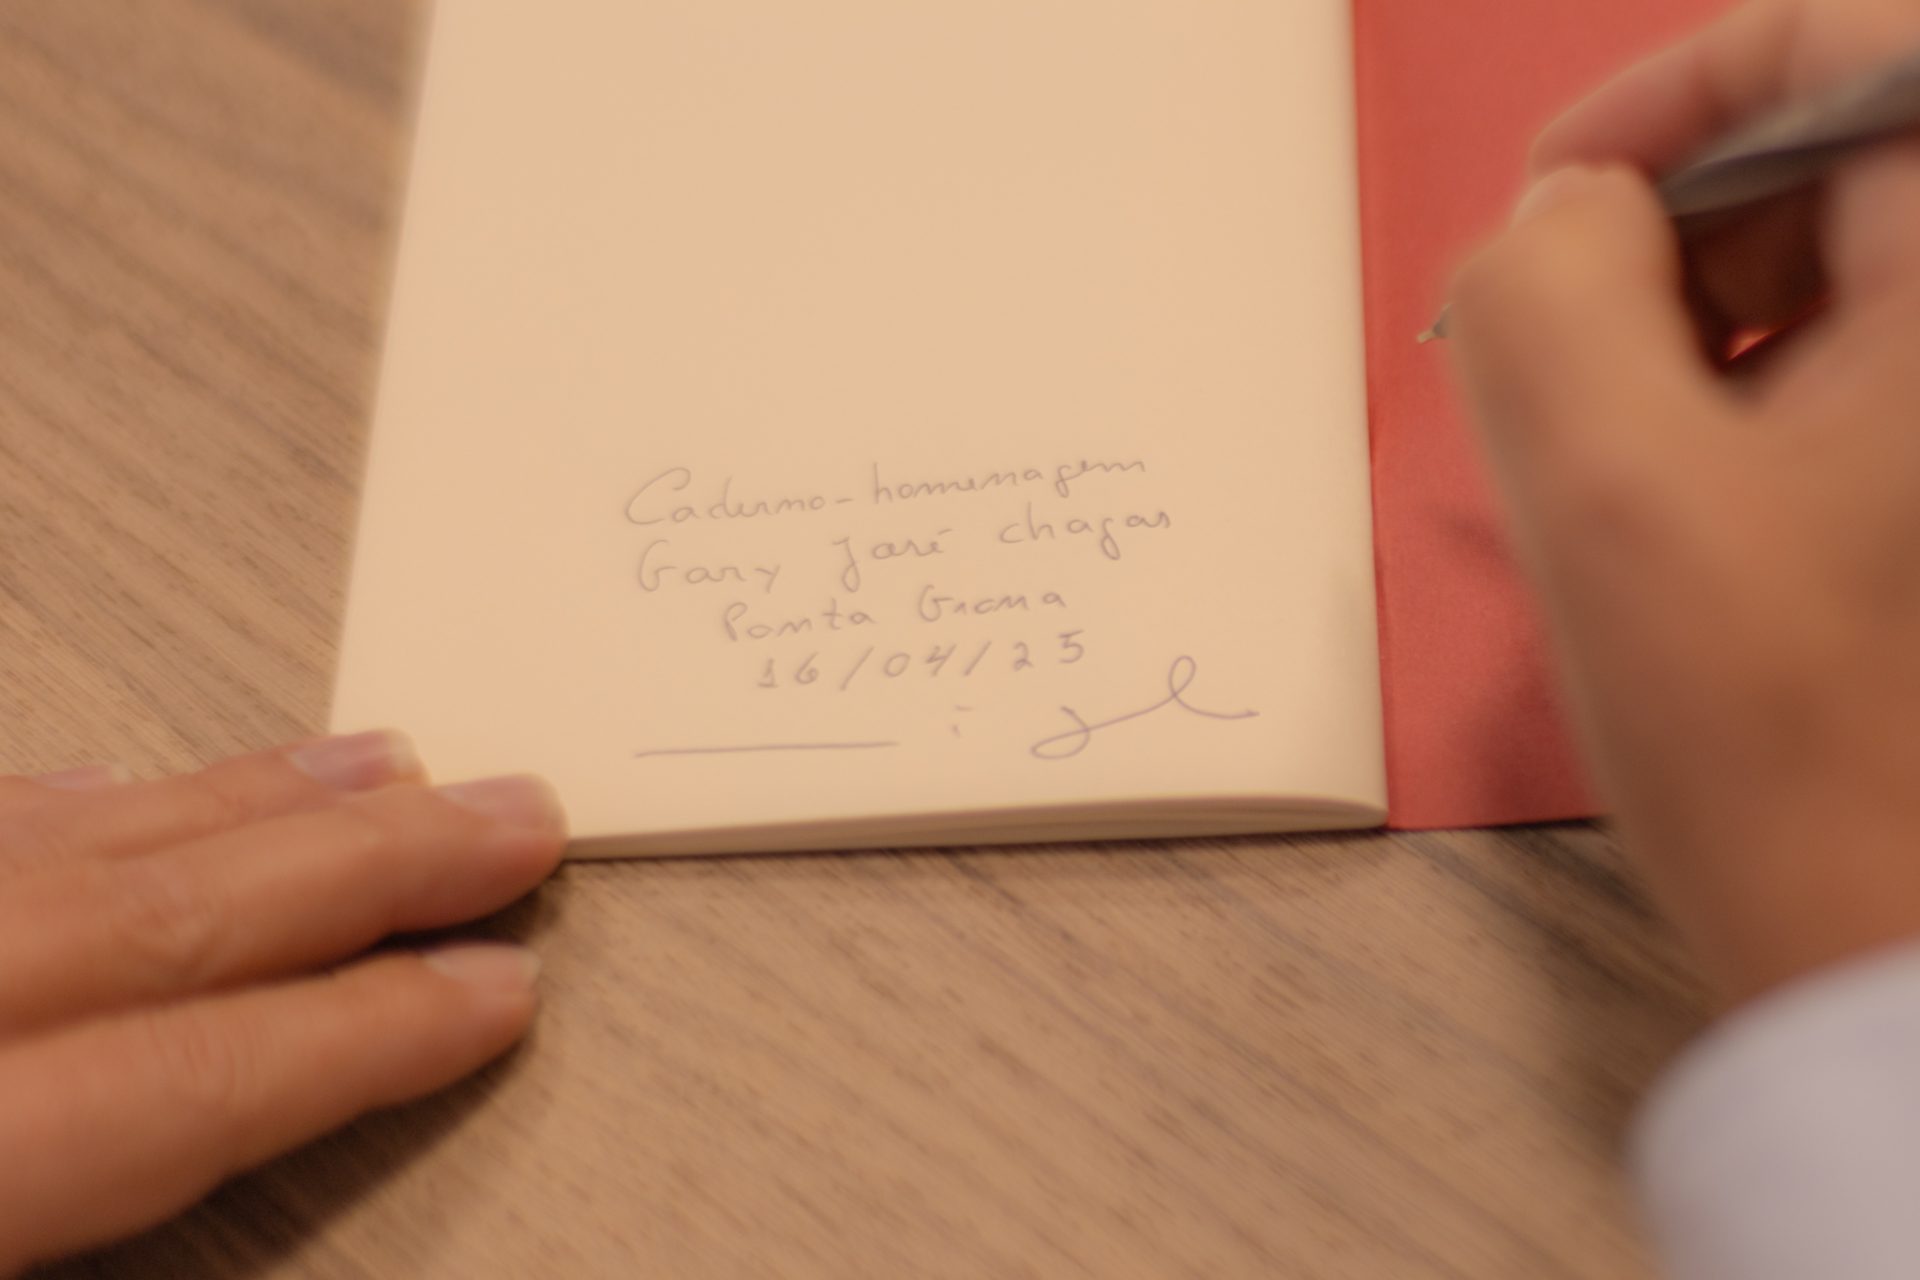 Caderno-homenagem
Gary José chagas
Ponta Grossa
16/04/25